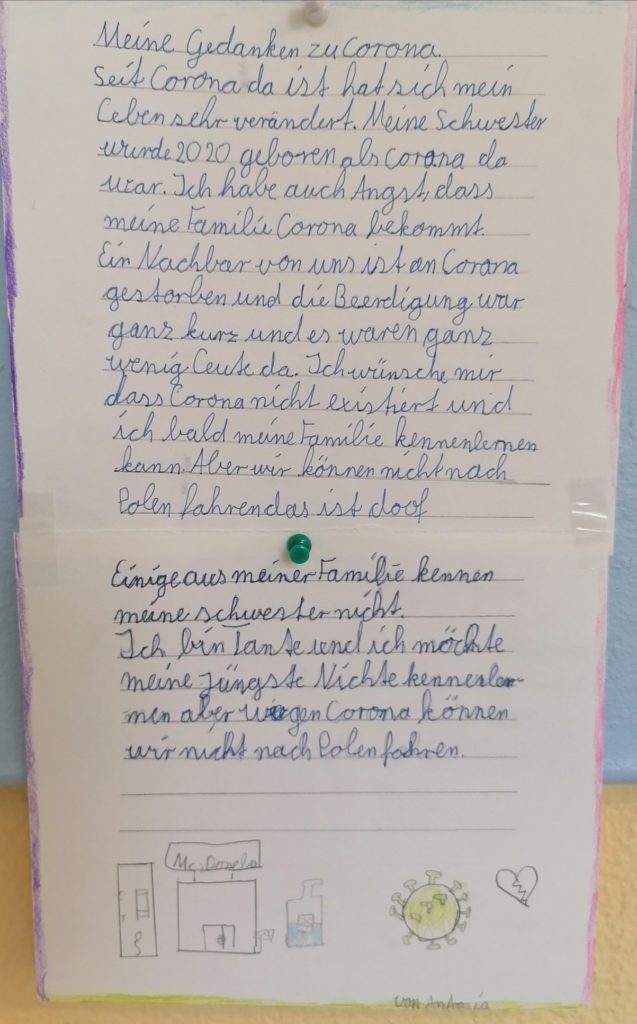 Meine Gedanken zu Corona.
Seit Corona da ist hat sich mein
Leben sehr verändert. Meine Schwester
wurde 2020 geboren als Corona da
war. Ich habe auch Angst, dass
meine Familie Corona bekommt.
Ein Nachbar von uns ist an Corona
gestorben und die Beerdigung war
ganz kurz und es waren ganz
wenig Leute da. Ich wünsche mir
dass Corona nicht existiert und
ich bald meine Familie kennenlernen
kann. Aber wir können nicht nach
Polen fahren das ist doof
Einige aus meiner Familie kennen
meine schwester nicht.
Ich bin Tante und ich möchte
meine jüngste Nichte kennenler-
nen aber wegen Corona können
wir nicht nach Polen fahren.
Mc Donels
von Antonia